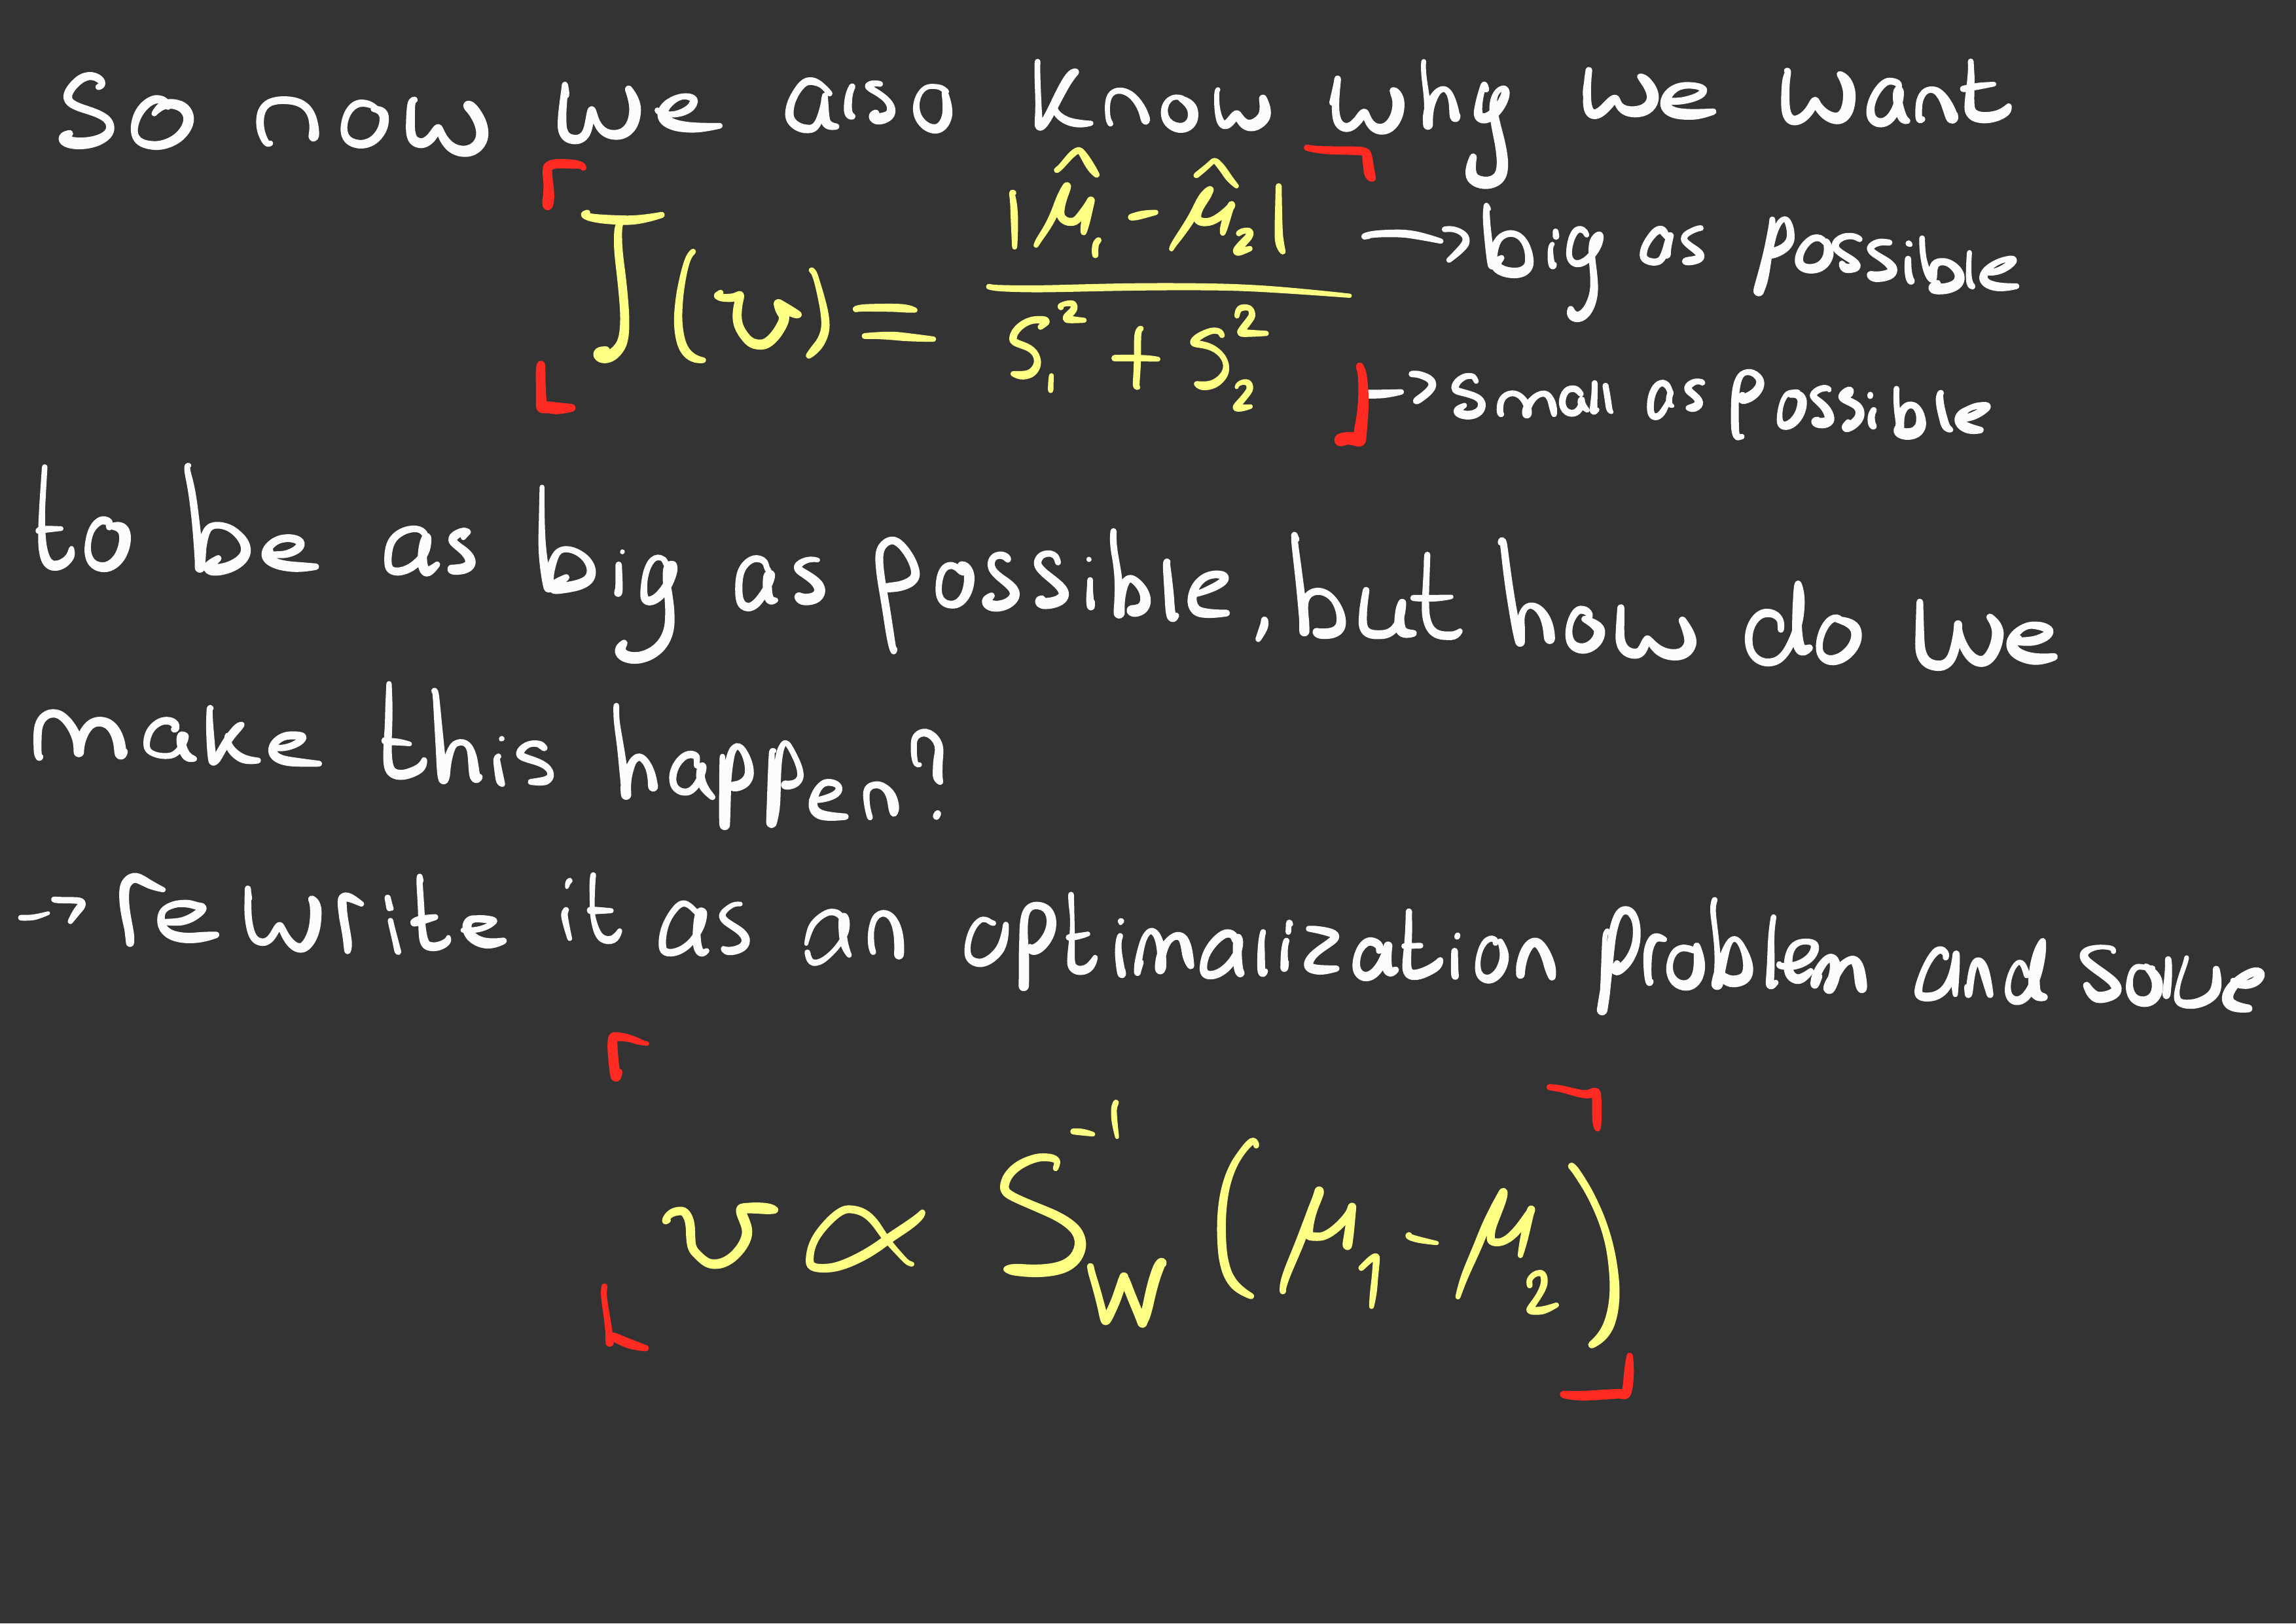 So now we also know why we want
J(v) = |μ̂₁ - μ̂₂| / (s₁² + s₂²)
→ big as possible
→ small as possible
to be as big as possible, but how do we
make this happen?
→ rewrite it as an optimalization problem and solve
v ∝ S_W⁻¹ (μ₁ - μ₂)